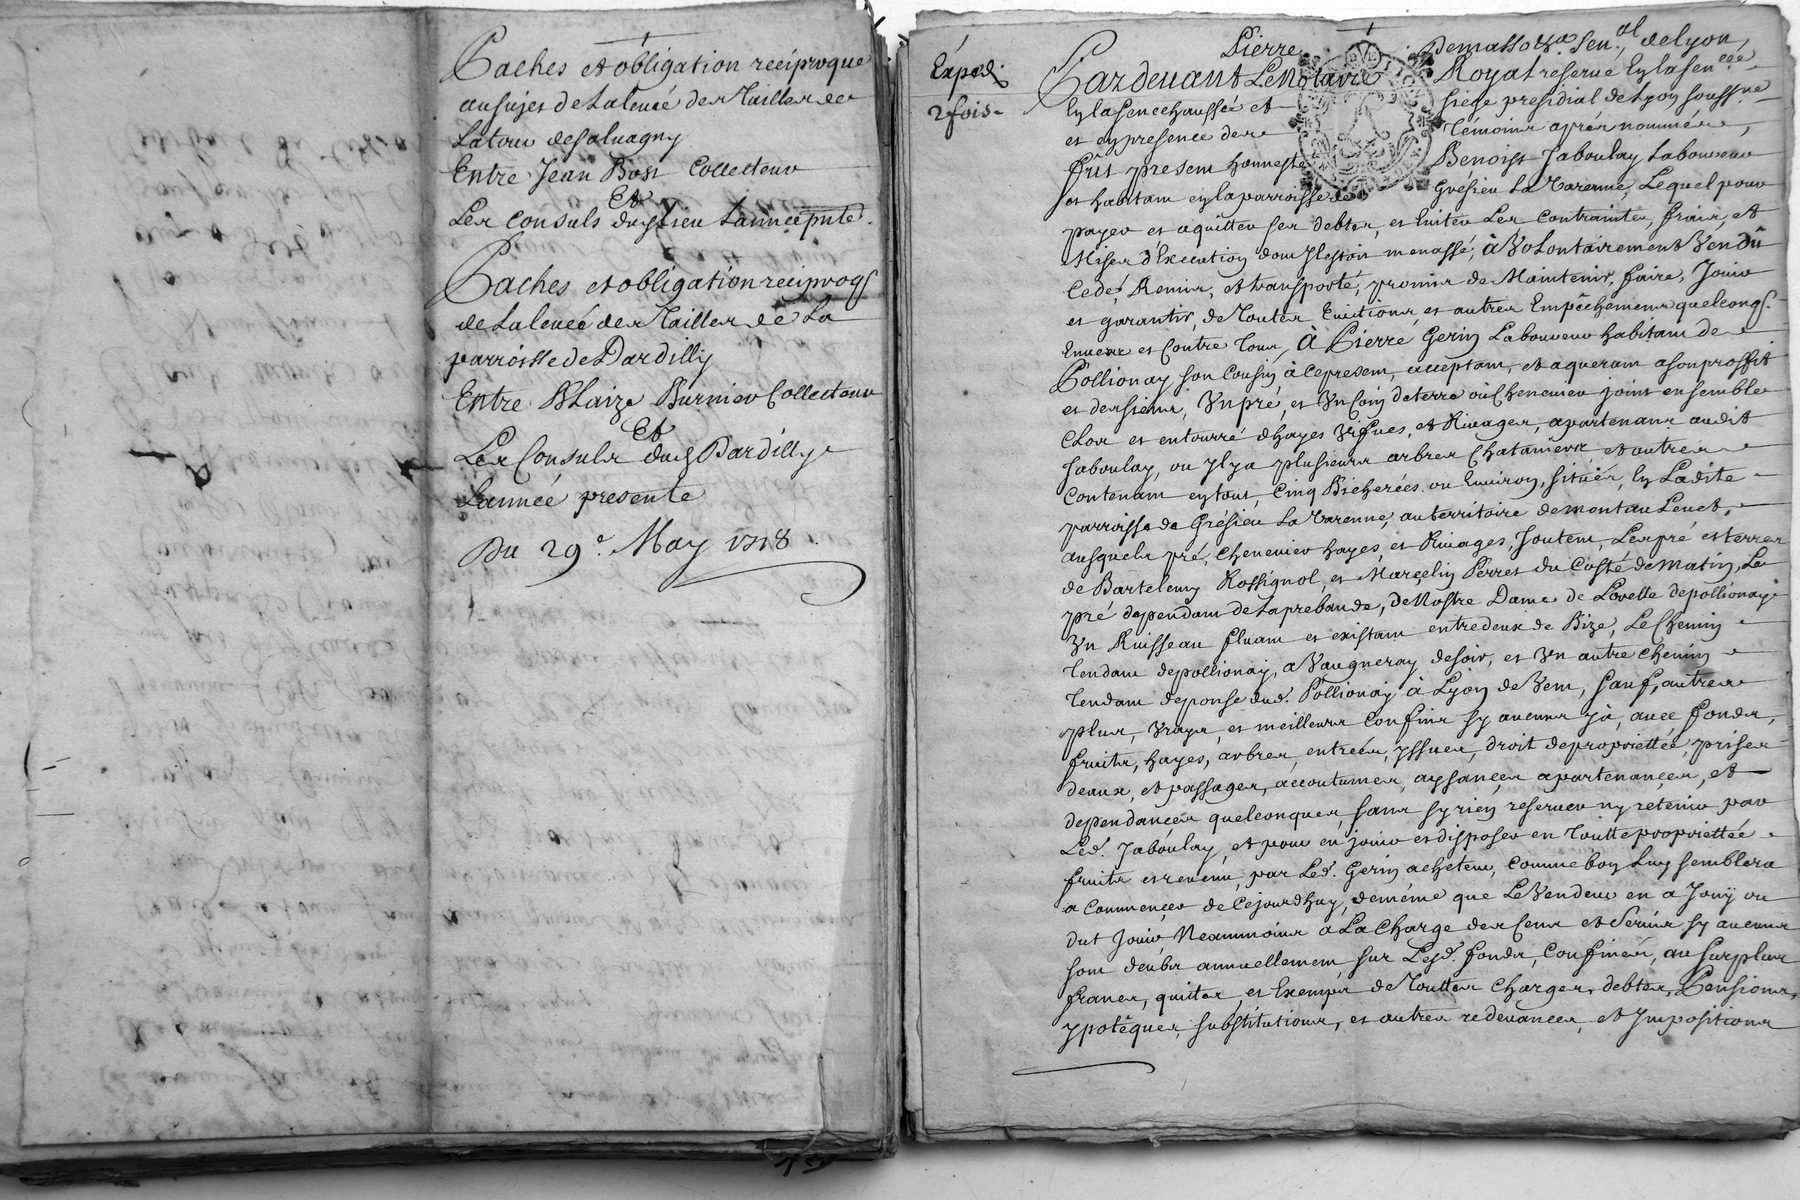 Paches et obligation reciproque
au sujet de La leveé des Tailles de
La tour de Salvagny
Entre Jean Bost Collecteur
Et
Les consuls dud. Lieu Lannée pnte.
Paches et obligation reciproq
de La leveé des Tailles de La
parroisse de Dardilly
Entre Blaize Burnier Collecteur
Et
Les Consuls dud Dardilly
Lanneé presente
Du 29e. May 1718.
Exped.
2 fois
Pierre Demasso &a. Sen.al de Lyon,
Pardevant Le Notaire Royal reservé En la Sen.ceé
En la Senechausseé et siege presidial de Lyon souss.ne
et en presence des témoins aprés nommés,
fût present honneste Benoist Jaboulay Laboureur
et habitant en la parroisse de Grésieu La Varenne, Lequel pour
payer et aquitter ses debtes, et Eviter Les Contraintes, frais, et
Mises d'Execution dont Il estoit menassé, à Volontairement Vendû
Cedé, Remis, et transporté, promis de Maintenir, faire, Jouir
et garantir, de Toutes Evictions, et autres Empêchemens quelconqs.
Envers et Contre Tous, à Pierre Gerin Laboureur habitant de
Pollionay son Cousin à ce present, acceptant, et aquerant a son proffit
et des siens, Un pré, et Un Coin de terre ou Chenevier joint ensemble
Clos et entourré d'hayes Vifves, et Rivages, apartenant audit
Jaboulay, ou Il y a plusieurs arbres Chataniers et autres
Contenant en tout, Cinq Bicherées ou Environ, situés, En Ladite
parroisse de Grésieu La Varenne, au territoire de montau Levet,
ausquels pré, Chenevier hayes, et Rivages, Joutent, Les pré et terres
de Bartelemy Rossignol, et Marcelin Perret du Costé de matin, Le
pré dependant de La prebande, De Nostre Dame de Lorette de pollionay
Un Ruisseau fluant et existant entre deux de Bize, Le Chemin
Tendant de pollionay, a Vaugneray de soir, et Un autre chemin
Tendant de ponse dud. Pollionay à Lyon de Vent, sauf, autres
plus, Vrays, et meilleurs Confins sy aucuns y à, avec fonds,
fruits, hayes, arbres, entreés, yssues, droit de proprietteé, prises
deaux, et passages, accoutumés, aysances, apartenances, et
dependances quelconques, sans sy rien reserver ny retenir par
Led. Jaboulay, et pour en jouir et disposer en Toutte proprietteé
fruits et revenu, par Led. Gerin acheteur, comme bon Luy semblera
a Commencer de Cejourdhuy, de même que Le Vendeur en a Jouÿ ou
dut Jouir Neanmoins à La Charge des Cens et Servis sy aucuns
sont deubs annuellement sur Lesd. fonds, Confinés, au surplus
francs, quittes, et Exempts de Touttes Charges, debtes, Pensions,
ypotêques, substitutions, et autres redevances, et Impositions